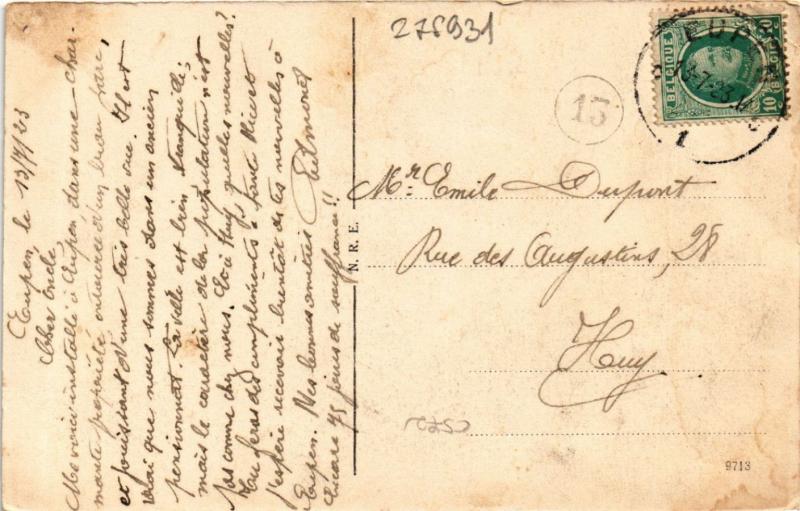 Eupen, le 13/7/23
Cher Oncle
Me voici installé à Eupen, dans une char-
mante propriété entourée d'un beau parc,
et jouissant d'une très belle vue. Il est
vrai que nous sommes dans un ancien
pensionnat. La ville est bien tranquille;
mais le caractère de la population n'est
pas comme chez nous. Et à Huy quelles nouvelles?
Tu feras des compliments à Tante
J'espère recevoir bientôt de tes nouvelles à
Eupen. Mes bonnes amitiés
Encore 45 jours de souffrance!!
275931
BELGIQUE
10
10
EUPEN
13-7-23
1
13
Mr. Emile Dupont
Rue des Augustins, 28
Huy
N. R. E.
9713